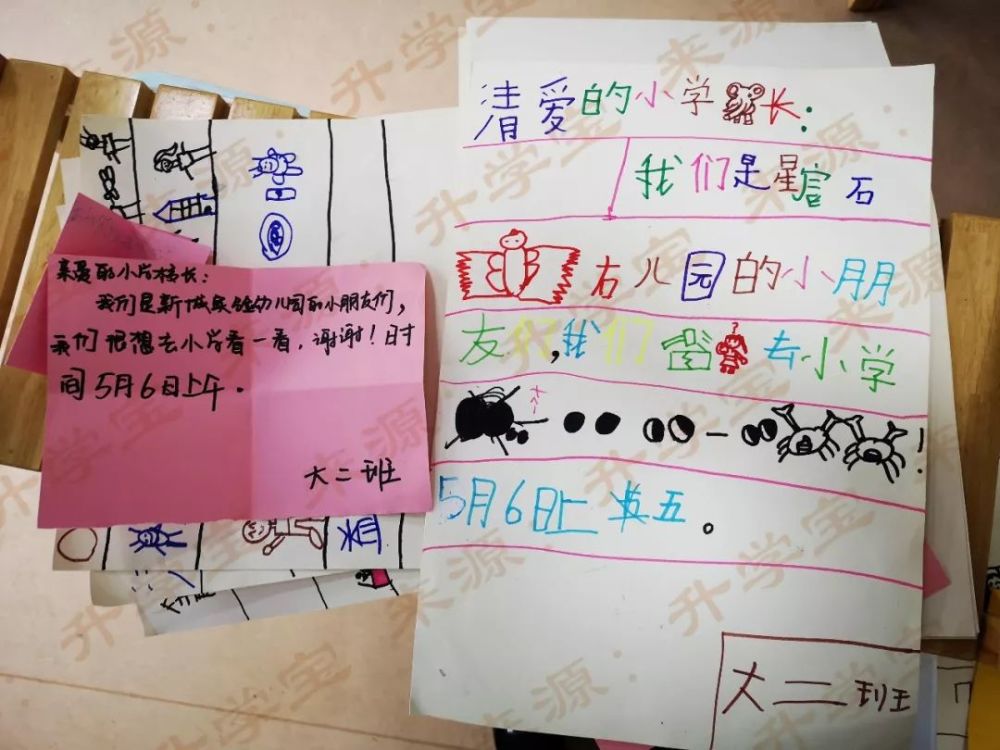 亲爱的小学校长:
我们是新城幼儿园的小朋友们,
我们很想去小学看一看,谢谢!时
间5月6日上午.
大二班
清爱的小学长:
我们是星宫石
右儿园的小朋
友们,我们去小学
大
一 !
5月6日上五。
大二班
来源:升学宝